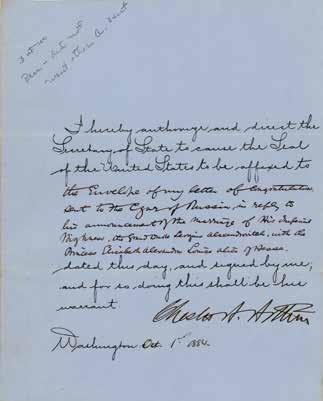 I hereby authorize and direct the
Secretary of State to cause the Seal
of the United States to be affixed to
the Envelope of my letter of Congratulation
sent to the Czar of Russia, in reply to
his announcement of the marriage of His Imperial
Highness, the Grand Duke Sergius Alexandrovitch, with the
Princess Elizabeth Alexandra Louise Alice of Hesse.
dated this day, and signed by me;
and for so doing this shall be his
warrant.
Chester A. Arthur
Washington Oct. 1st 1884.